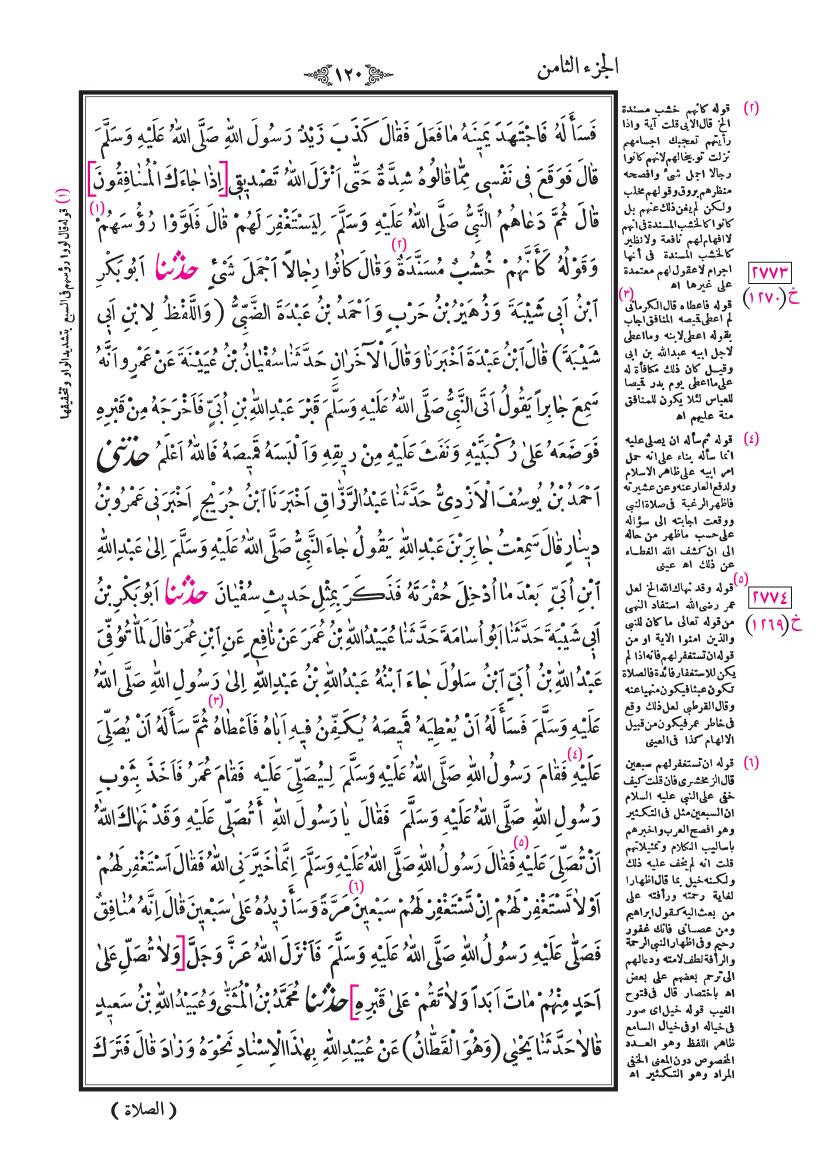 الجزء الثامن
١٢٠
فَسَأَلَهُ فَاجْتَهَدَ يَمِينَهُ مَا فَعَلَ فَقَالَ كَذَبَ زَيْدٌ رَسُولَ اللهِ صَلَّى اللهُ عَلَيْهِ وَسَلَّمَ
قَالَ فَوَقَعَ فِى نَفْسِى مِمَّا قَالُوهُ شِدَّةٌ حَتَّى اَنْزَلَ اللهُ تَصْدِيقِى [اِذَا جَاءَكَ الْمُنَافِقُونَ]
قَالَ ثُمَّ دَعَاهُمُ النَّبِىُّ صَلَّى اللهُ عَلَيْهِ وَسَلَّمَ لِيَسْتَغْفِرَ لَهُمْ قَالَ فَلَوَّوْا رُؤُسَهُمْ (١)
وَقَوْلُهُ كَأَنَّهُمْ خُشُبٌ مُسَنَّدَةٌ (٢) وَقَالَ كَانُوا رِجَالاً اَجْمَلَ شَىْءٍ حَدَّثَنَا اَبُوبَكْرِ
ابْنُ اَبِى شَيْبَةَ وَزُهَيْرُ بْنُ حَرْبٍ وَاَحْمَدُ بْنُ عَبْدَةَ الضَّبِّىُّ (وَاللَّفْظُ لِابْنِ اَبِى
شَيْبَةَ) قَالَ ابْنُ عَبْدَةَ اَخْبَرَنَا وَقَالَ الْآخَرَانِ حَدَّثَنَا سُفْيَانُ بْنُ عُيَيْنَةَ عَنْ عَمْرٍو اَنَّهُ
سَمِعَ جَابِراً يَقُولُ اَتَى النَّبِىُّ صَلَّى اللهُ عَلَيْهِ وَسَلَّمَ قَبْرَ عَبْدِاللهِ بْنِ اُبَىٍّ فَاَخْرَجَهُ مِنْ قَبْرِهِ
فَوَضَعَهُ عَلَى رُكْبَتَيْهِ وَنَفَثَ عَلَيْهِ مِنْ رِيقِهِ وَاَلْبَسَهُ قَمِيصَهُ فَاللهُ اَعْلَمُ حَدَّثَنِى
اَحْمَدُ بْنُ يُوسُفَ الْاَزْدِىُّ حَدَّثَنَا عَبْدُ الرَّزَّاقِ اَخْبَرَنَا ابْنُ جُرَيْجٍ اَخْبَرَنِى عَمْرُو بْنُ
دِينَارٍ قَالَ سَمِعْتُ جَابِرَ بْنَ عَبْدِاللهِ يَقُولُ جَاءَ النَّبِىُّ صَلَّى اللهُ عَلَيْهِ وَسَلَّمَ اِلَى عَبْدِاللهِ
ابْنِ اُبَىٍّ بَعْدَ مَا اُدْخِلَ حُفْرَتَهُ فَذَكَرَ بِمِثْلِ حَدِيثِ سُفْيَانَ حَدَّثَنَا اَبُوبَكْرِ بْنُ
اَبِى شَيْبَةَ حَدَّثَنَا اَبُو اُسَامَةَ حَدَّثَنَا عُبَيْدُ اللهِ بْنُ عُمَرَ عَنْ نَافِعٍ عَنِ ابْنِ عُمَرَ قَالَ لَمَّا تُوُفِّىَ
عَبْدُ اللهِ بْنُ اُبَىٍّ ابْنُ سَلُولَ جَاءَ ابْنُهُ عَبْدُ اللهِ بْنُ عَبْدِ اللهِ اِلَى رَسُولِ اللهِ صَلَّى اللهُ
عَلَيْهِ وَسَلَّمَ فَسَأَلَهُ اَنْ يُعْطِيَهُ قَمِيصَهُ يُكَفِّنُ فِيهِ اَبَاهُ فَاَعْطَاهُ (٣) ثُمَّ سَأَلَهُ اَنْ يُصَلِّىَ
عَلَيْهِ (٤) فَقَامَ رَسُولُ اللهِ صَلَّى اللهُ عَلَيْهِ وَسَلَّمَ لِيُصَلِّىَ عَلَيْهِ فَقَامَ عُمَرُ فَاَخَذَ بِثَوْبِ
رَسُولِ اللهِ صَلَّى اللهُ عَلَيْهِ وَسَلَّمَ فَقَالَ يَا رَسُولَ اللهِ أَتُصَلِّى عَلَيْهِ وَقَدْ نَهَاكَ اللهُ
اَنْ تُصَلِّىَ عَلَيْهِ (٥) فَقَالَ رَسُولُ اللهِ صَلَّى اللهُ عَلَيْهِ وَسَلَّمَ اِنَّمَا خَيَّرَنِىَ اللهُ فَقَالَ اسْتَغْفِرْ لَهُمْ
اَوْ لَا تَسْتَغْفِرْ لَهُمْ اِنْ تَسْتَغْفِرْ لَهُمْ سَبْعِينَ مَرَّةً (٦) وَسَأَزِيدُهُ عَلَى سَبْعِينَ قَالَ اِنَّهُ مُنَافِقٌ
فَصَلَّى عَلَيْهِ رَسُولُ اللهِ صَلَّى اللهُ عَلَيْهِ وَسَلَّمَ فَاَنْزَلَ اللهُ عَزَّ وَجَلَّ [وَلَا تُصَلِّ عَلَى
اَحَدٍ مِنْهُمْ مَاتَ اَبَداً وَلَا تَقُمْ عَلَى قَبْرِهِ] حَدَّثَنَا مُحَمَّدُ بْنُ الْمُثَنَّى وَعُبَيْدُ اللهِ بْنُ سَعِيدٍ
قَالَا حَدَّثَنَا يَحْيَى (وَهُوَ الْقَطَّانُ) عَنْ عُبَيْدِ اللهِ بِهٰذَا الْاِسْنَادِ نَحْوَهُ وَزَادَ قَالَ فَتَرَكَ
( الصلاة )
(١) قوله قال لووا رؤسهم فى السبع بتشديد الواو وتخفيفها
(٢) قوله كانهم خشب مسندة
الخ قال الابى قلت آية واذا
رأيتهم تعجبك اجسامهم
نزلت توبيخا لهم لانهم كانوا
رجالا اجمل شئ وافصحه
منظرهم يروق وقولهم يخلب
ولكن لم يغن ذلك عنهم بل
كانوا كالخشب المسندة فى انهم
لا افهام لهم نافعة ولا نظير
كالخشب المسندة فى أنها
اجرام لا عقول لهم معتمدة
على غيرها اه
(٣) قوله فاعطاه قال الكرمانى
لم اعطى قميصه المنافق اجاب
بقوله اعطى لابنه وما اعطى
لاجل ابيه عبدالله بن ابى
وقيل كان ذلك مكافأة له
على ما اعطى يوم بدر قميصا
للعباس لئلا يكون للمنافق
منة عليهم اه
(٤) قوله ثم سأله ان يصلى عليه
انما سأله بناء على انه حمل
امر ابيه على ظاهر الاسلام
ولدفع العار عنه وعن عشيرته
فاظهر الرغبة فى صلاة النبى
ووقعت اجابته الى سؤاله
على حسب ماظهر من حاله
الى ان كشف الله الغطاء
عن ذلك اه عينى
(٥) قوله وقد نهاك الله الخ لعل
عمر رضى الله استفاد النهى
من قوله تعالى ما كان للنبى
والذين امنوا الاية او من
قوله ان تستغفر لهم فانه اذا لم
يكن للاستغفار فائدة فالصلاة
تكون عبثا فيكون منهيا عنه
وقال القرطبى لعل ذلك وقع
فى خاطر عمر فيكون من قبيل
الالهام كذا فى العينى
(٦) قوله ان تستغفر لهم سبعين
قال الزمخشرى فان قلت كيف
خفى على النبى عليه السلام
ان السبعين مثل فى التكثير
وهو افصح العرب واخبرهم
باساليب الكلام وتمثيلاتهم
قلت انه لم يخف عليه ذلك
ولكنه خيل بما قال اظهارا
لغاية رحمته ورأفته على
من بعث اليه كقول ابراهيم
ومن عصانى فانك غفور
رحيم وفى اظهار النبى الرحمة
والرأفة لطف لامته ودعا لهم
الى ترحم بعضهم على بعض
اه باختصار قال فى فتوح
الغيب قوله خيل اى صور
فى خياله او فى خيال السامع
ظاهر اللفظ وهو العدد
المخصوص دون المعنى الخفى
المراد وهو التكثير اه
٢٧٧٣
خ (١٢٧٠)
٢٧٧٤
خ (١٢٦٩)